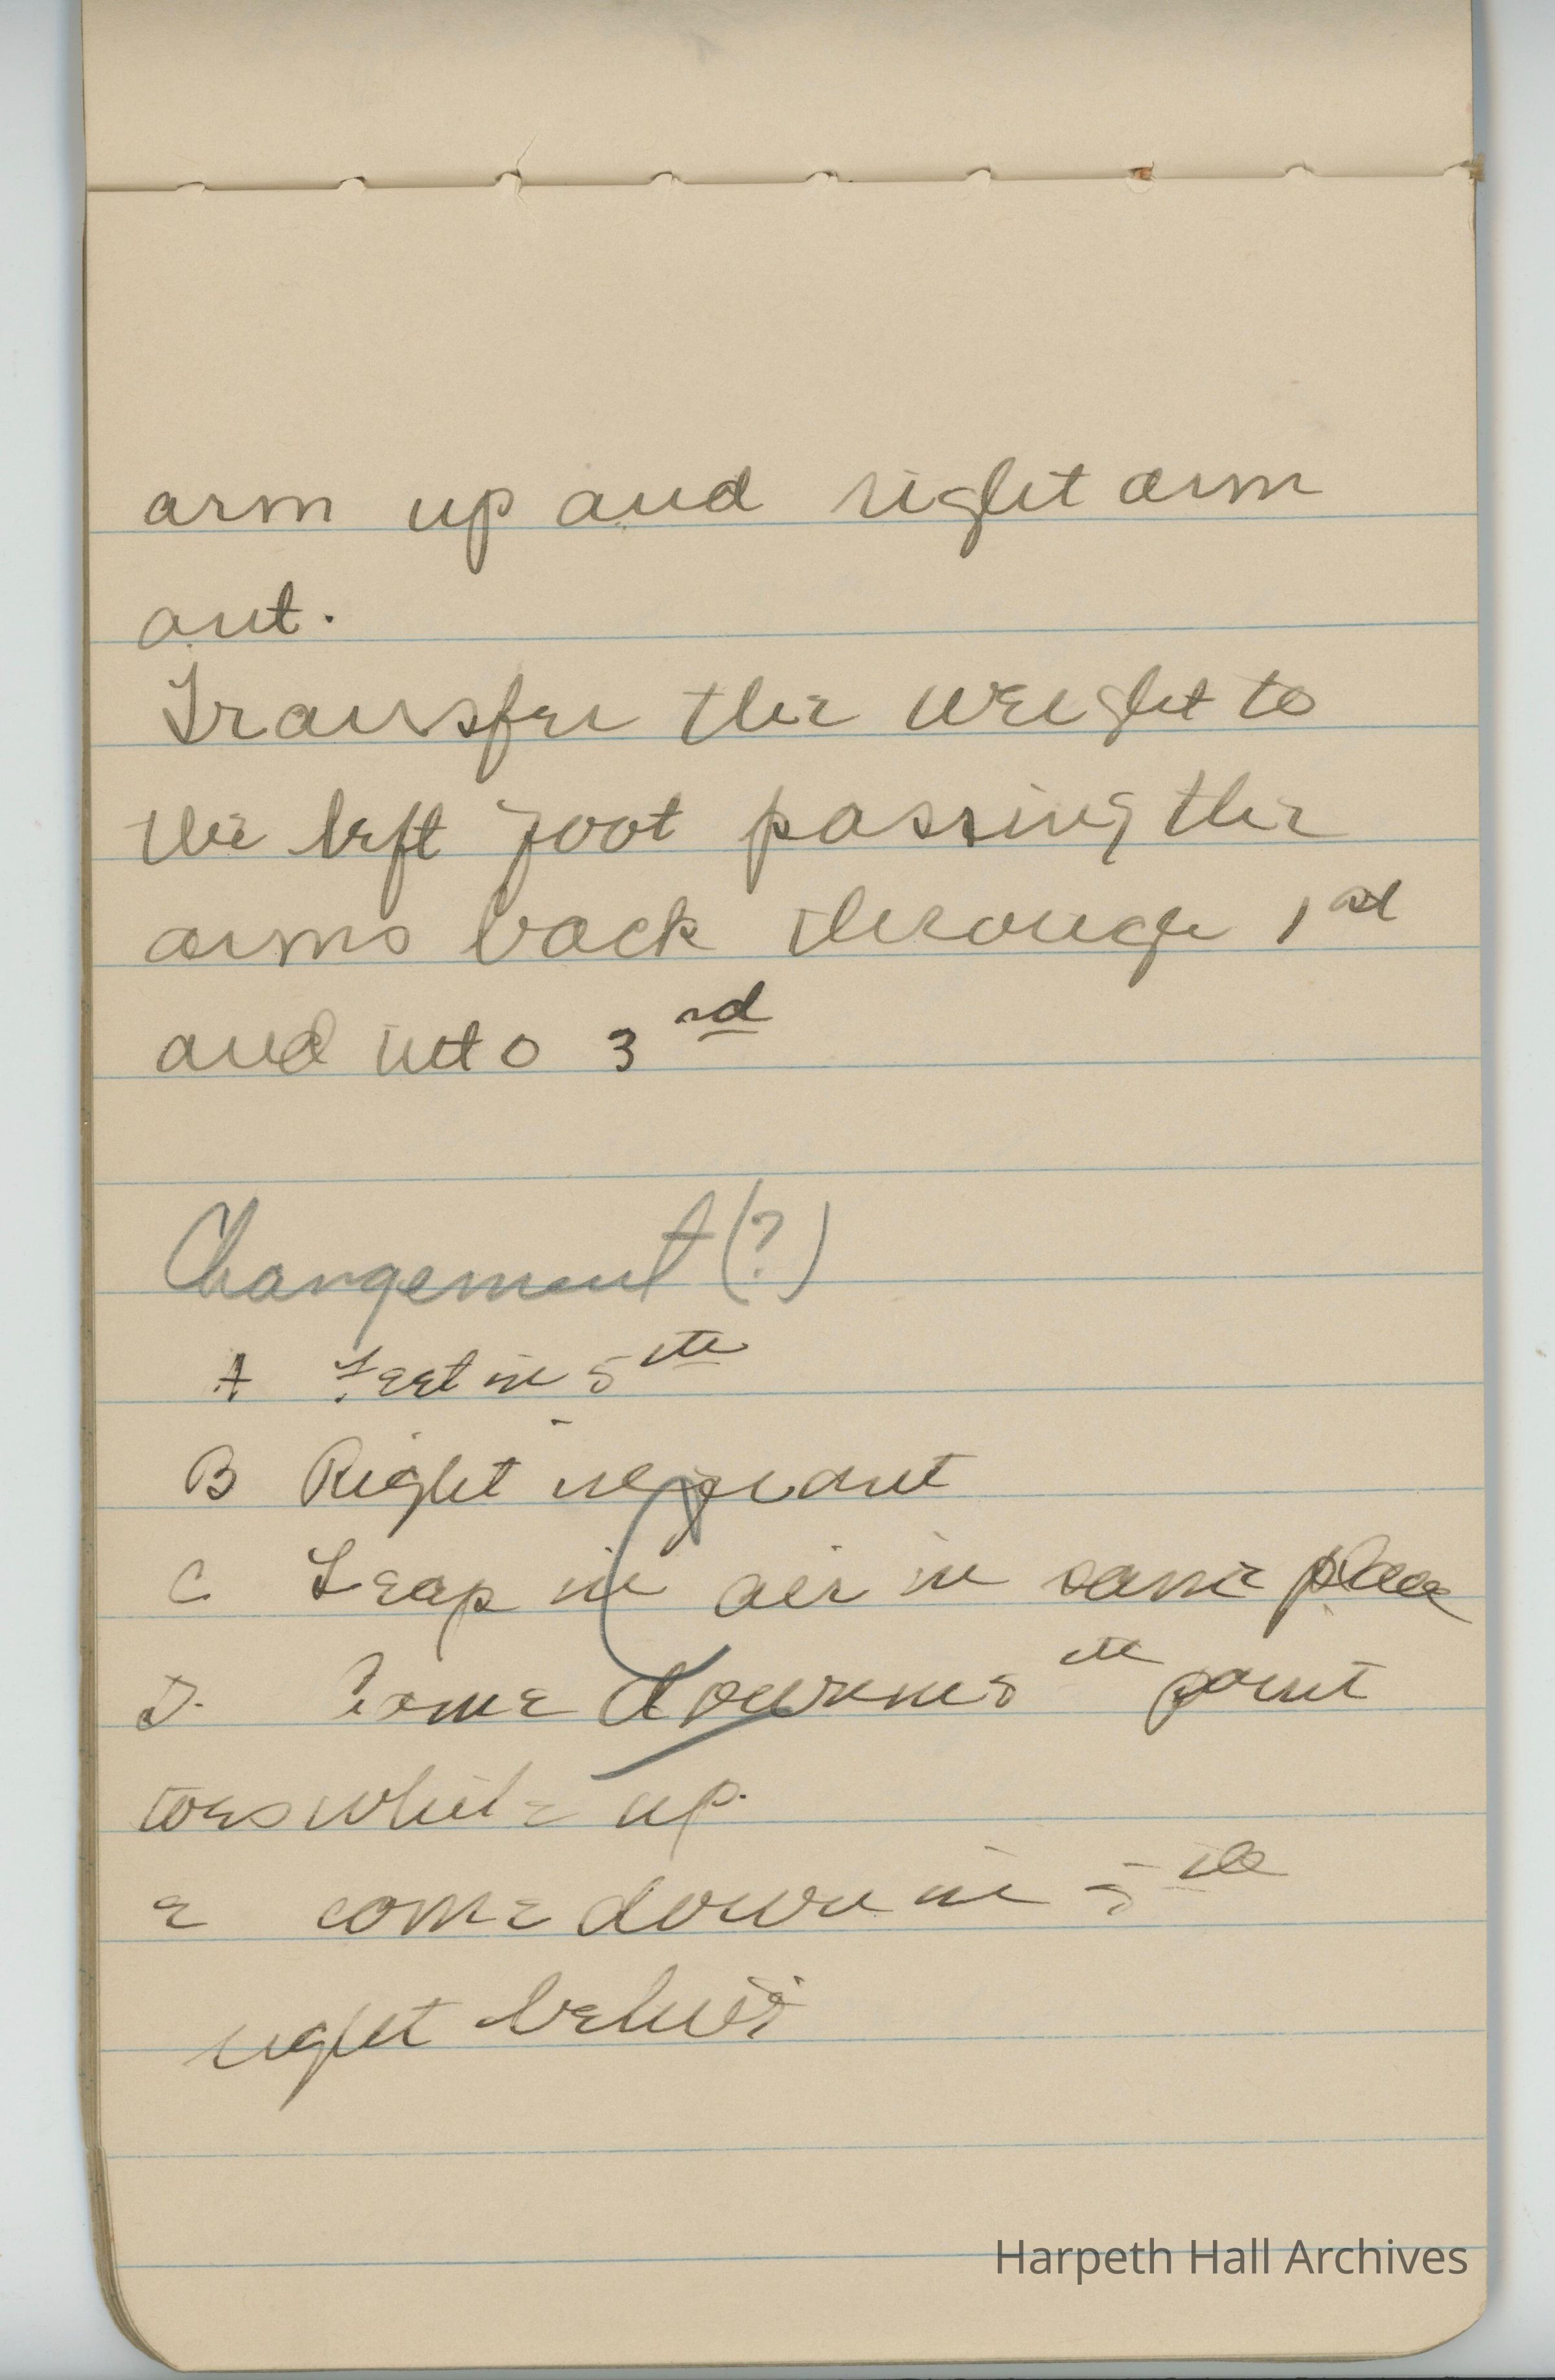 arm up and right arm
out.
Transfer the weight to
the left foot passing the
arms back through 1st
and into 3rd
Changement (?)
A Feet in 5th
B Right in front
C Leap in air in same place
D. Come down in 5th point
toes while up.
E come down in 5th
right behind
Harpeth Hall Archives